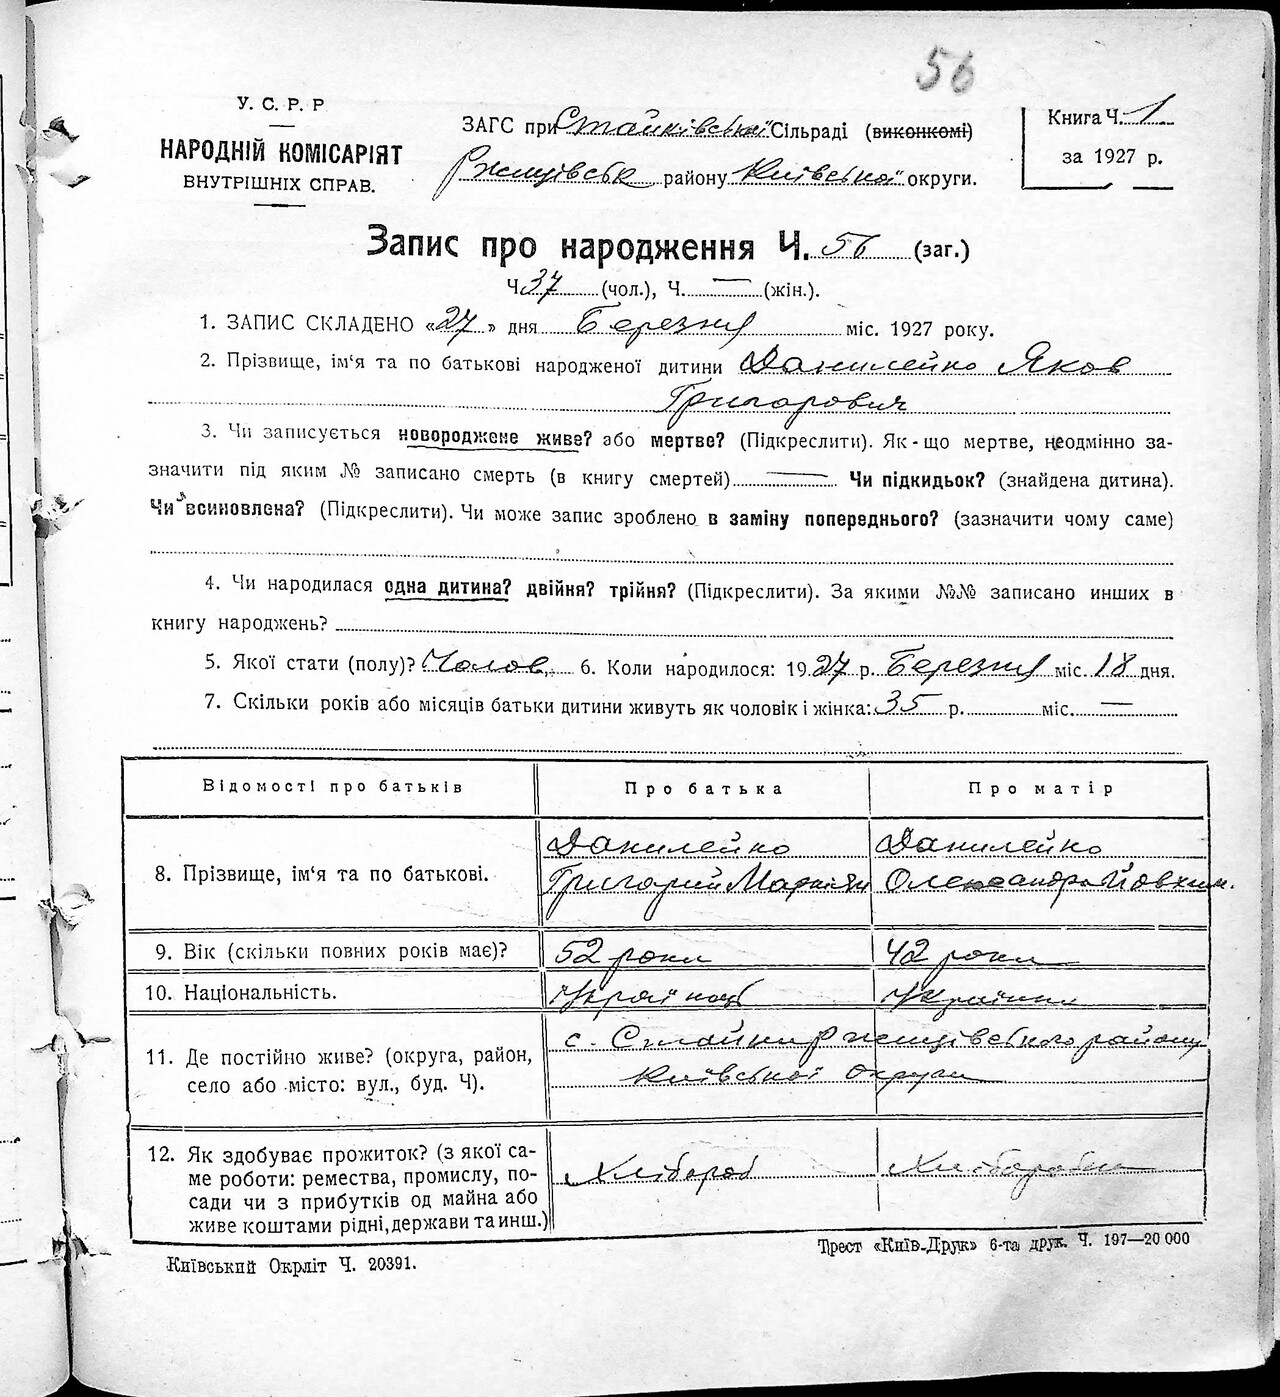 56
У. С. Р. Р
НАРОДНІЙ КОМІСАРІЯТ
ВНУТРІШНІХ СПРАВ.
ЗАГС при Стайківській Сільраді (виконкомі)
Ржищівськ району Київської округи.
Книга Ч. 1
за 1927 р.
Запис про народження Ч. 56 (заг.)
Ч 37 (чол.), Ч. — (жін.).
1. ЗАПИС СКЛАДЕНО «27» дня Березня міс. 1927 року.
2. Прізвище, ім‘я та по батькові народженої дитини Данилейко Яков
Григорович
3. Чи записується новороджене живе? або мертве? (Підкреслити). Як-що мертве, неодмінно за-
значити під яким № записано смерть (в книгу смертей) — Чи підкидьок? (знайдена дитина).
Чи всиновлена? (Підкреслити). Чи може запис зроблено в заміну попереднього? (зазначити чому саме)
4. Чи народилася одна дитина? двійня? трійня? (Підкреслити). За якими №№ записано инших в
книгу народжень?
5. Якої стати (полу)? Чолов. 6. Коли народилося: 1927 р. Березня міс. 18 дня.
7. Скільки років або місяців батьки дитини живуть як чоловік і жінка: 35 р. міс. —
Відомості про батьків Про батька Про матір
8. Прізвище, ім‘я та по батькові.
Данилейко
Григорий Маркіян
Данилейко
Олександра Йовхим.
9. Вік (скільки повних років має)? 52 роки 42 роки
10. Національність. Українець Українка
11. Де постійно живе? (округа, район,
село або місто: вул., буд. Ч).
с. Стайки Ржищівського району
Київської округи
12. Як здобуває прожиток? (з якої са-
ме роботи: ремества, промислу, по-
сади чи з прибутків од майна або
живе коштами рідні, держави та инш.)
Хлібороб Хліборобка
Київський Окрліт Ч. 20391.
Трест «Київ-Друк» 6-та друк. Ч. 197—20 000